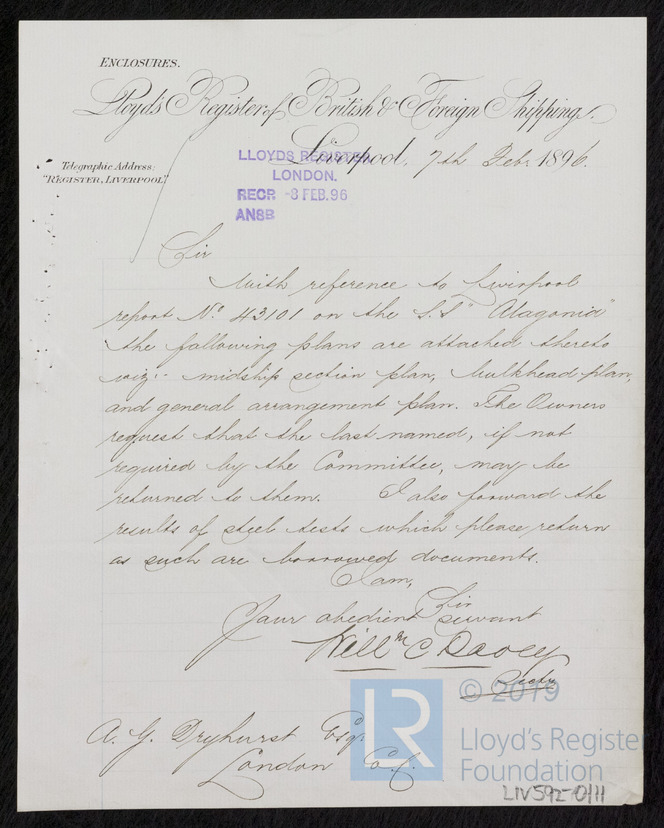 ENCLOSURES.
Lloyds Register of British & Foreign Shipping.
Liverpool, 7th Feb. 1896.
Telegraphic Address:
"REGISTER, LIVERPOOL"
LLOYDS REGISTER
LONDON.
RECR -8 FEB. 96
ANSB
Sir
With reference to Liverpool
report No. 43101 on the S.S "Atagonia"
the following plans are attached thereto
viz:- midship section plan, bulkhead plan,
and general arrangement plan. The Owners
request that the last named, if not
required by the Committee, may be
returned to them. I also forward the
results of steel tests which please return
as such are borrowed documents.
I am,
Sir
Your obedient servant
Willm C Davey
Secty
A. G. Dryhurst Esq.
London
LR
© 2019
Lloyd's Registe
Foundation
LIV592-0111